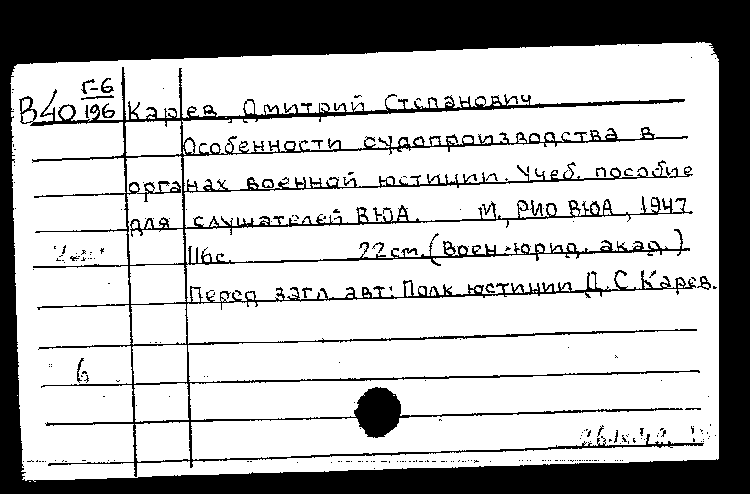 Г-6
В40 196
Карев, Дмитрий Степанович
Особенности судопроизводства в
органах военной юстиции. Учеб. пособие
для слушателей ВЮА. М., РИО ВЮА, 1947.
116с. 22см. (Воен-юрид. акад.)
Перед загл. авт: Полк. юстиции Д.С. Карев.
6